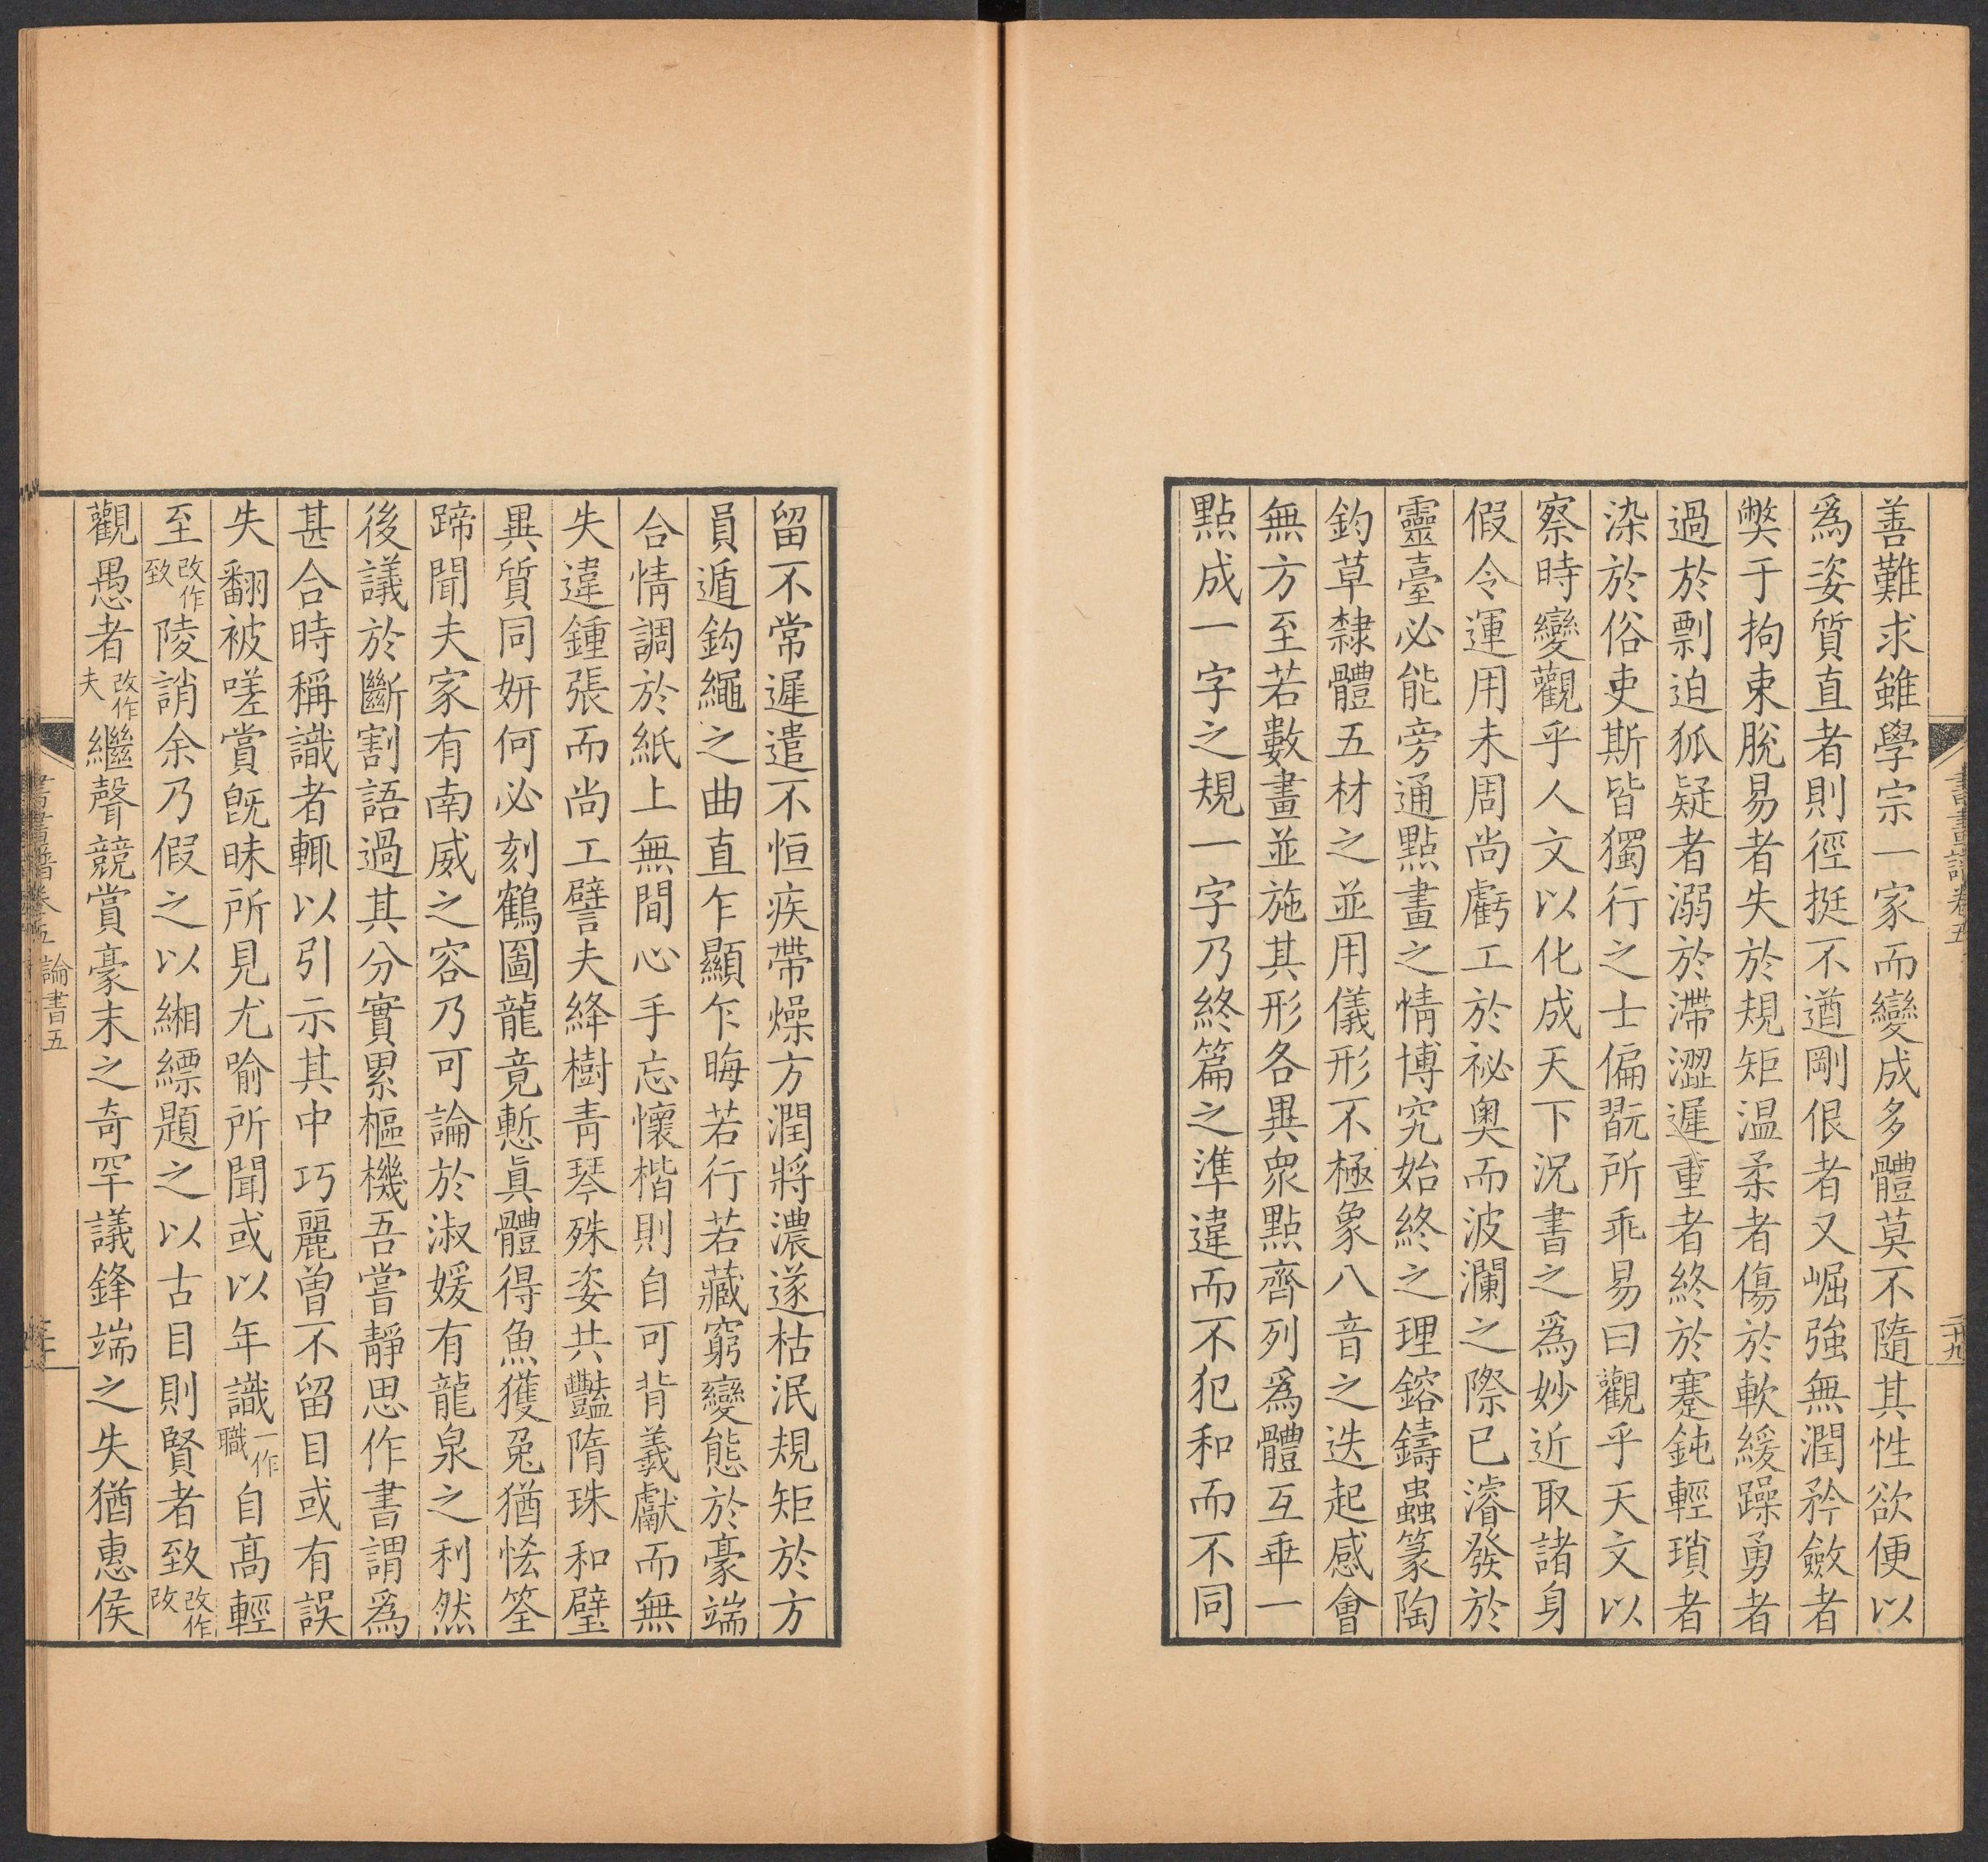 善難求雖學宗一家而變成多體莫不隨其性欲便以
爲姿質直者則徑挺不遒剛佷者又崛強無潤矜斂者
弊于拘束脫易者失於規矩温柔者傷於軟緩躁勇者
過於剽迫狐疑者溺於滯澀遲重者終於蹇鈍輕瑣者
染於俗吏斯皆獨行之士偏翫所乖易曰觀乎天文以
察時變觀乎人文以化成天下況書之爲妙近取諸身
假令運用未周尚虧工於祕奧而波瀾之際已濬發於
靈臺必能旁通點畫之情博究始終之理鎔鑄蟲篆陶
鈞草隸體五材之並用儀形不極象八音之迭起感會
無方至若數畫並施其形各異眾點齊列爲體互乖一
點成一字之規一字乃終篇之準違而不犯和而不同
書畫譜卷五
二十九
留不常遲遣不恒疾帶燥方潤將濃遂枯泯規矩於方
員遁鈎繩之曲直乍顯乍晦若行若藏窮變態於豪端
合情調於紙上無間心手忘懷楷則自可背羲獻而無
失違鍾張而尚工譬夫絳樹青琴殊姿共豔隋珠和璧
異質同妍何必刻鶴圖龍竟慙眞體得魚獲兔猶恡筌
蹄聞夫家有南威之容乃可論於淑媛有龍泉之利然
後議於斷割語過其分實累樞機吾嘗靜思作書謂爲
甚合時稱識者輒以引示其中巧麗曾不留目或有誤
失翻被嗟賞旣昧所見尤喻所聞或以年識一作職自高輕
至改作致陵誚余乃假之以緗縹題之以古目則賢者致改作改
觀愚者改作夫繼聲競賞豪末之奇罕議鋒端之失猶惠侯
書畫譜卷五 論書五